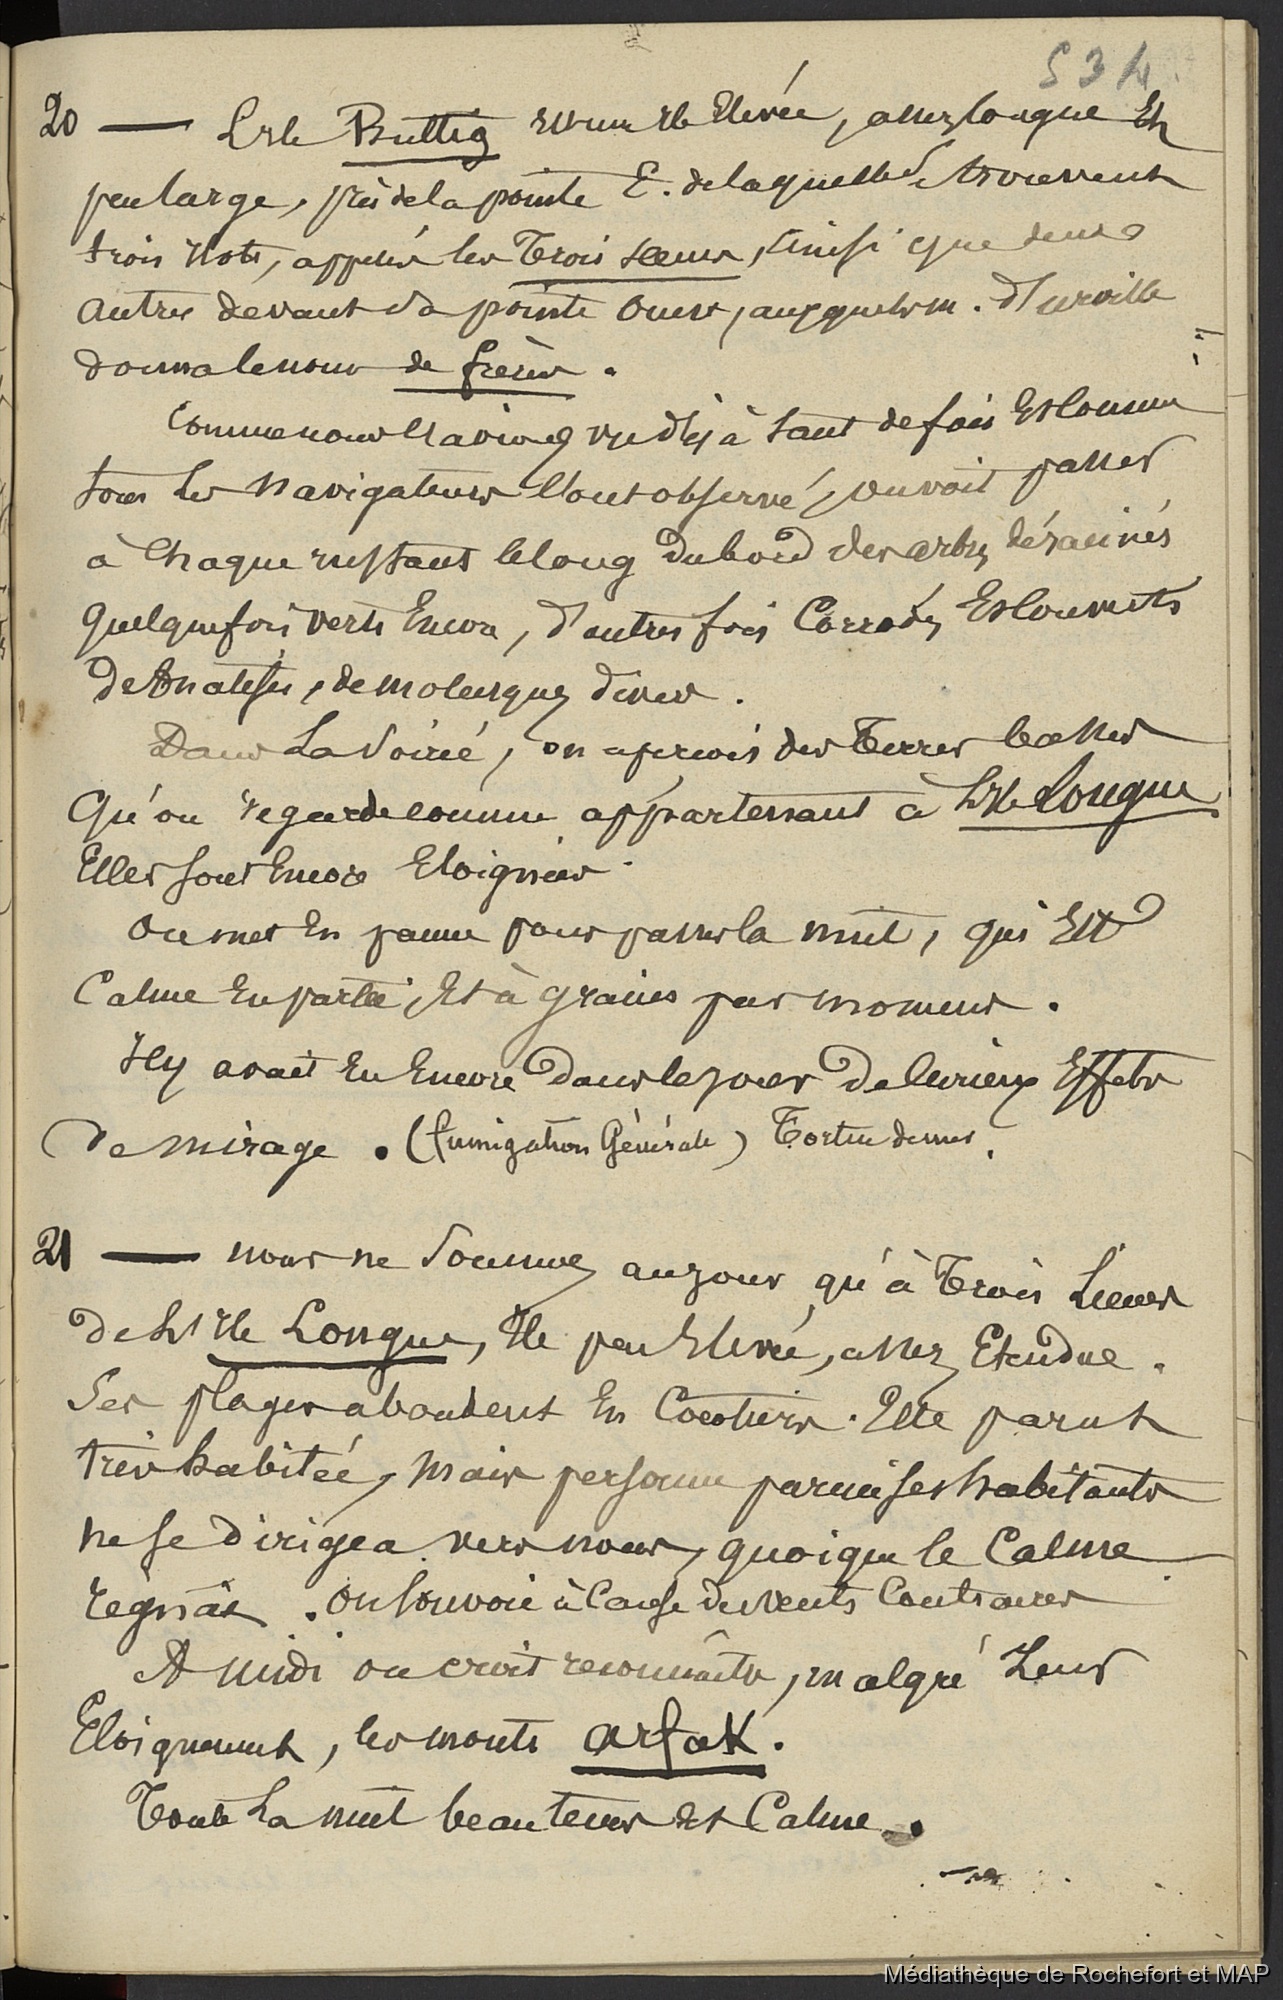 534
20 — L'ile Bultig est une ile Elevée, assez longue Et
peu large, près de la pointe E. de laquelle Se trouvent
trois ilots, appelés les Trois sœurs, Ainsi que deux
autres devant Sa pointe Ouest, auxquels m. d'urville
donna le nom de frères.
Comme nous l'avions vu déjà tant de fois Et comme
tous les Navigateurs l'ont observé, on voit passer
à Chaque instant le long Du bord des arbres déracinés
quelquefois verts Encore, d'autres fois Corrodés Et Couverts
De Anatifes, de molusques divers.
Dans La Soirée, on aperçois des Terres basses
Qu'on regarde comme appartenant à L'ile Longue
Elles sont Encore Eloignées.
On met En panne pour passer la nuit, qui Est
Calme En partie, Et à grains par moment.
Il y avait Eu Encore Dans le jour De Curieux Effets
De mirage. (fumigation Générale) Tortue
21 — nous ne Sommes au jour qu'à Trois Lieues
De L'ile Longue, Ile peu Elevée, assez Etendue.
Ses plages abondent En Cocotiers. Elle parut
très habitée, Mais personne parmi ses habitants
ne se dirigea vers nous, quoique le Calme
régnât. On louvoie à Cause des vents Contraires
A midi on croit reconnaitre, malgré Leur
Eloignement, les monts arfak.
Toute La nuit beau tems Et Calme.
Médiathèque de Rochefort et MAP